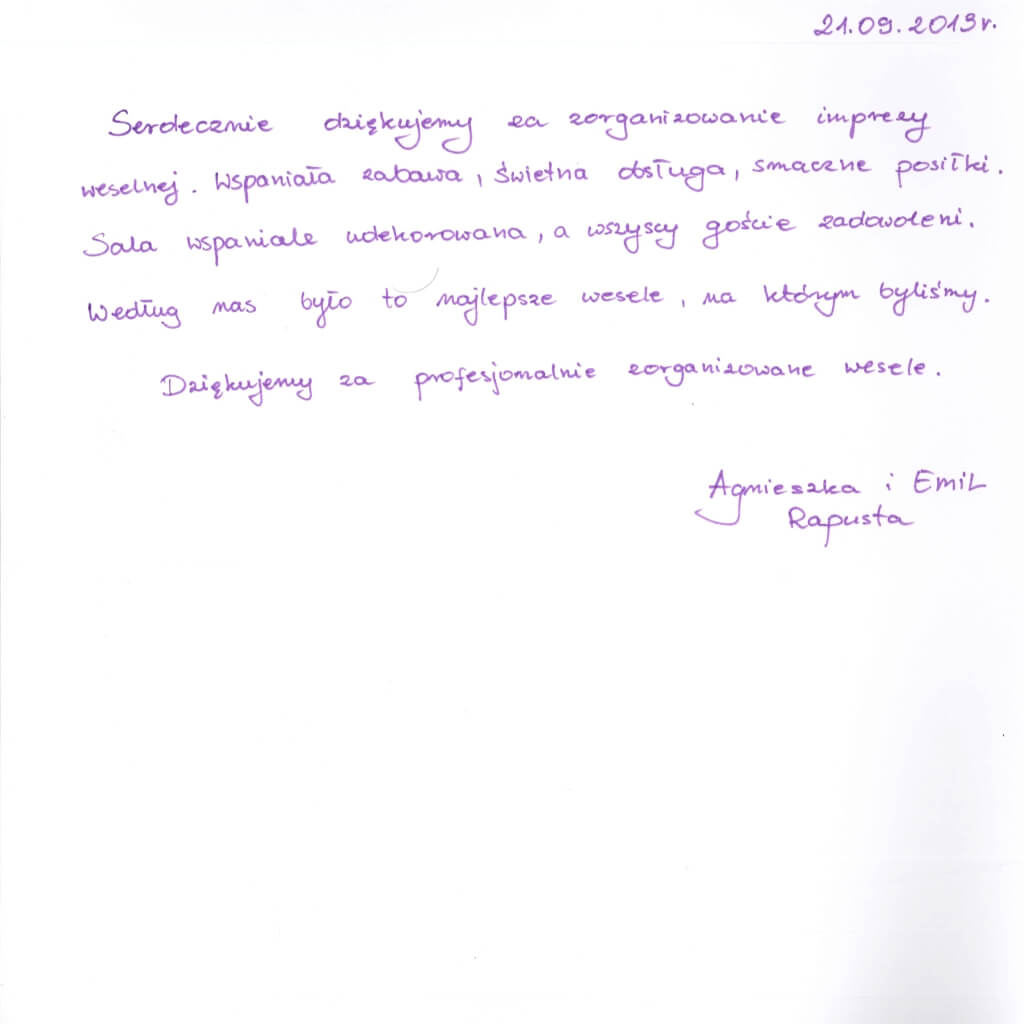 21.09.2013r.
Serdecznie dziękujemy za zorganizowanie imprezy
weselnej. Wspaniała zabawa, świetna obsługa, smaczne posiłki.
Sala wspaniale udekorowana, a wszyscy goście zadowoleni.
Według nas było to najlepsze wesele, na którym byliśmy.
Dziękujemy za profesjonalnie zorganizowane wesele.
Agnieszka i Emil
Rapusta